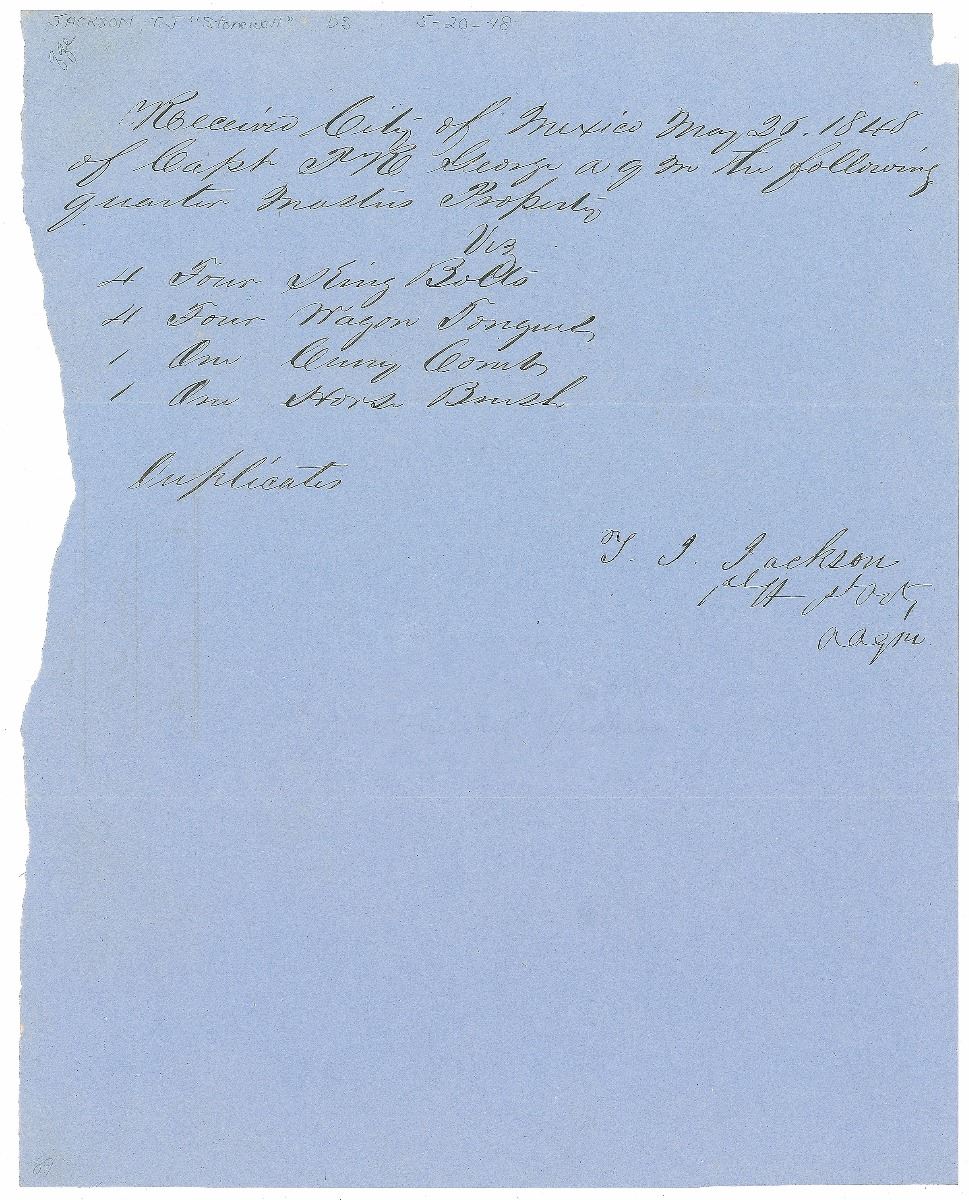 JACKSON, TJ "Stonewall" DS 5-20-48
Received City of Mexico May 20. 1848
of Capt P M George a q m the following
quarter Masters Property
Viz
4 Four King Bolts
4 Four Wagon Tongues
1 One Curry Comb
1 One Horse Brush
Duplicates
T. J. Jackson
1st Lt 1st Arty
a a q m